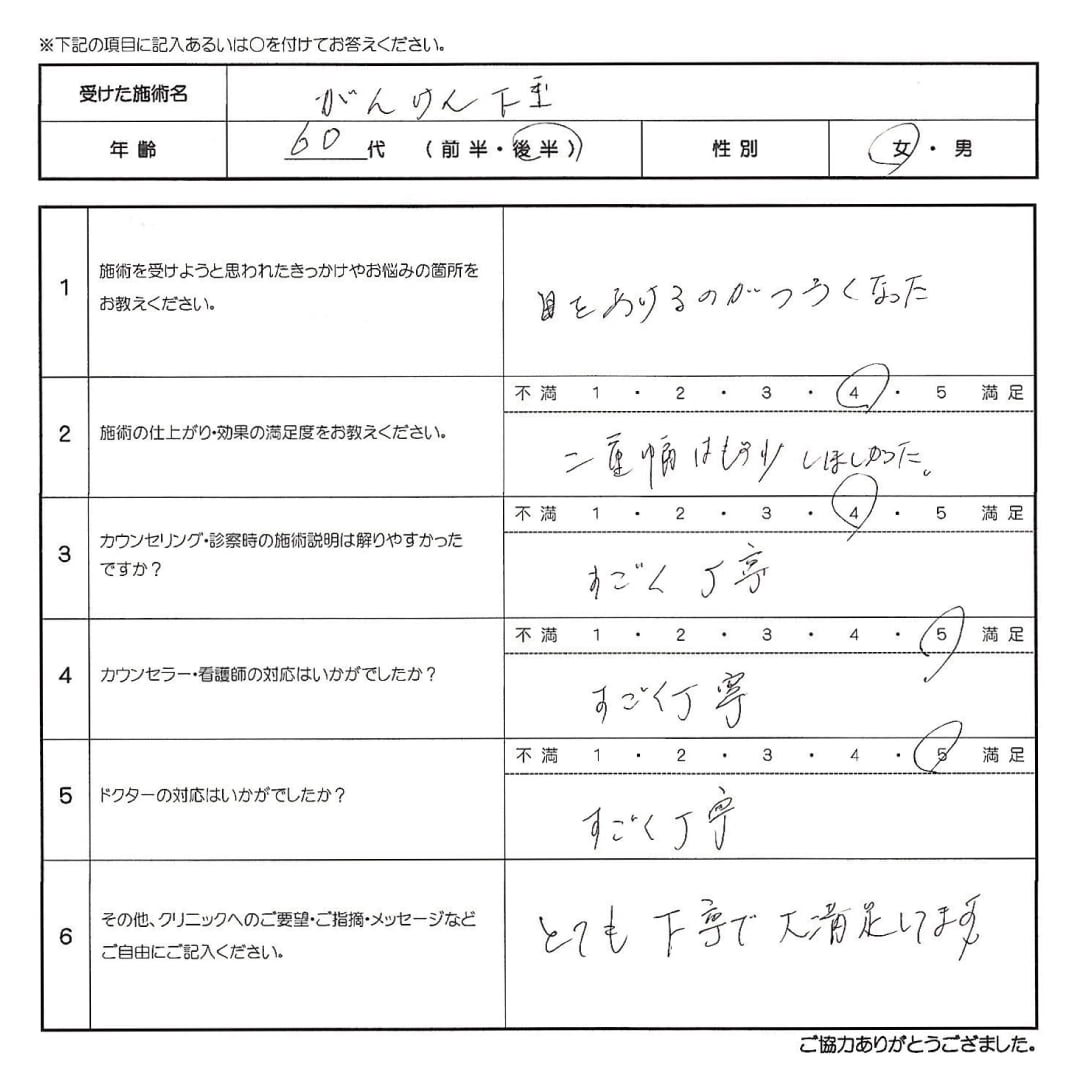 ※下記の項目に記入あるいは〇を付けてお答えください。
受けた施術名 がんけん下垂
年齢 60代 (前半・後半) 性別 女・男
1 施術を受けようと思われたきっかけやお悩みの箇所を
お教えください。
目をあけるのがつらくなった
不満 1・2・3・4・5 満足
2 施術の仕上がり・効果の満足度をお教えください。
二重幅はもう少しほしかった。
不満 1・2・3・4・5 満足
3 カウンセリング・診察時の施術説明は解りやすかった
ですか？
すごく丁寧
不満 1・2・3・4・5 満足
4 カウンセラー・看護師の対応はいかがでしたか？
すごく丁寧
不満 1・2・3・4・5 満足
5 ドクターの対応はいかがでしたか？
すごく丁寧
6 その他、クリニックへのご要望・ご指摘・メッセージなど
ご自由にご記入ください。
とても丁寧で大満足してます
ご協力ありがとうござました。